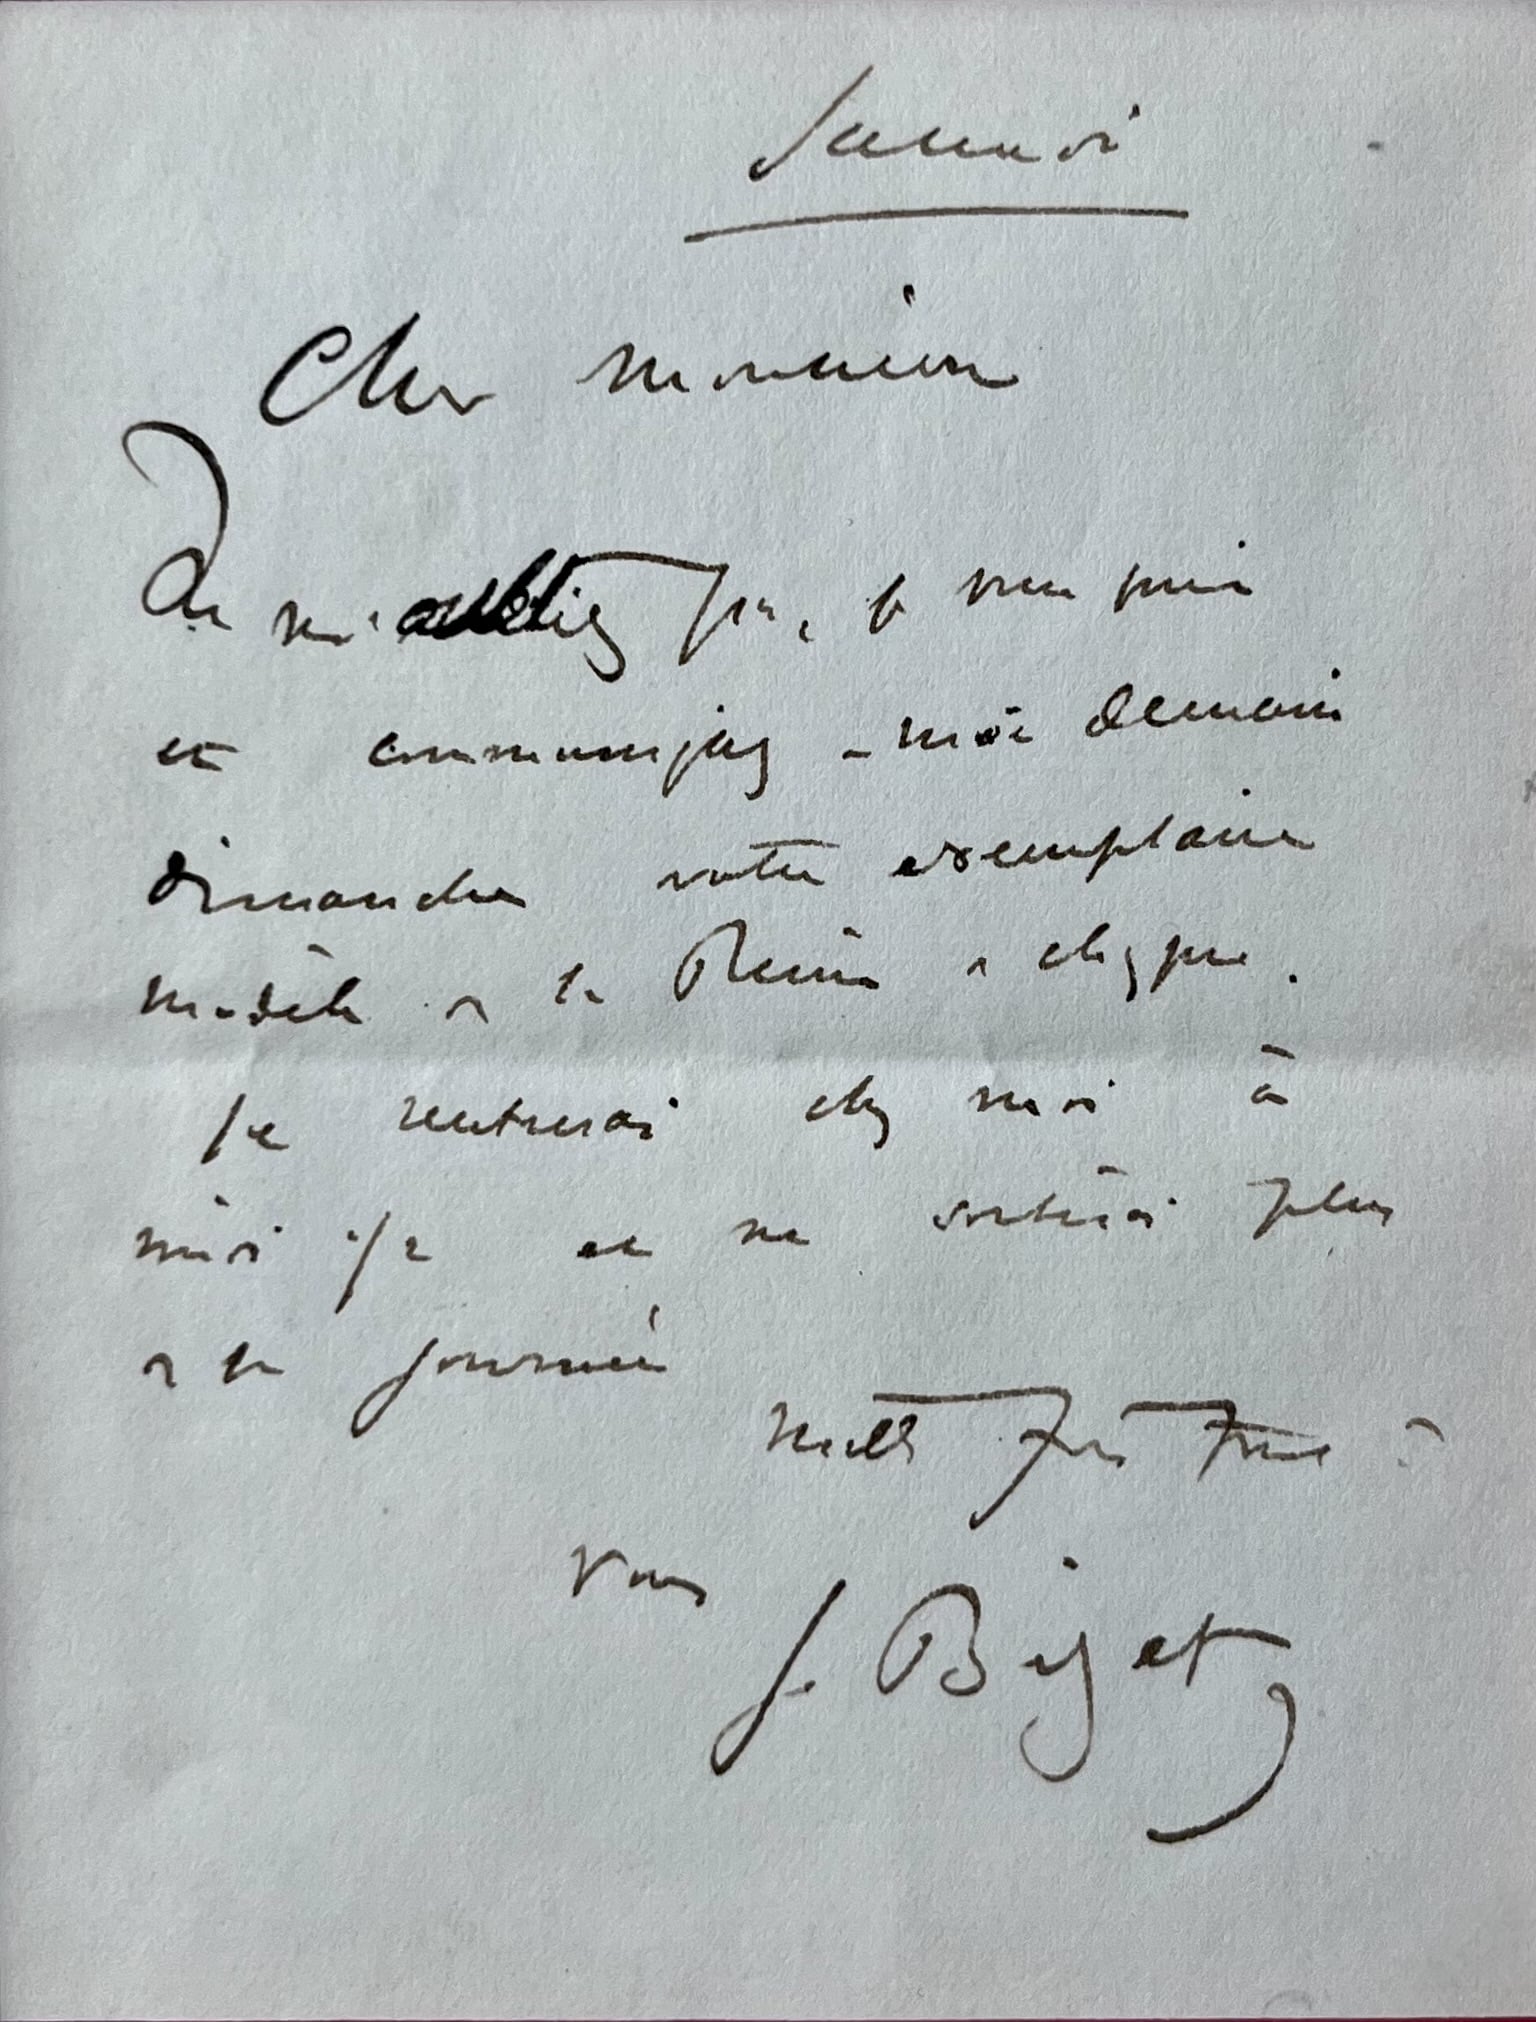 Samedi
Cher monsieur
Ne m'oubliez pas, je vous prie
et communiquez-moi demain
dimanche votre exemplaire
modèle de la Reine de chypre.
Je rentrerai chez moi à
midi 1/2 et ne sortirai plus
de la journée
mille fois tout à
vous
G. Bizet